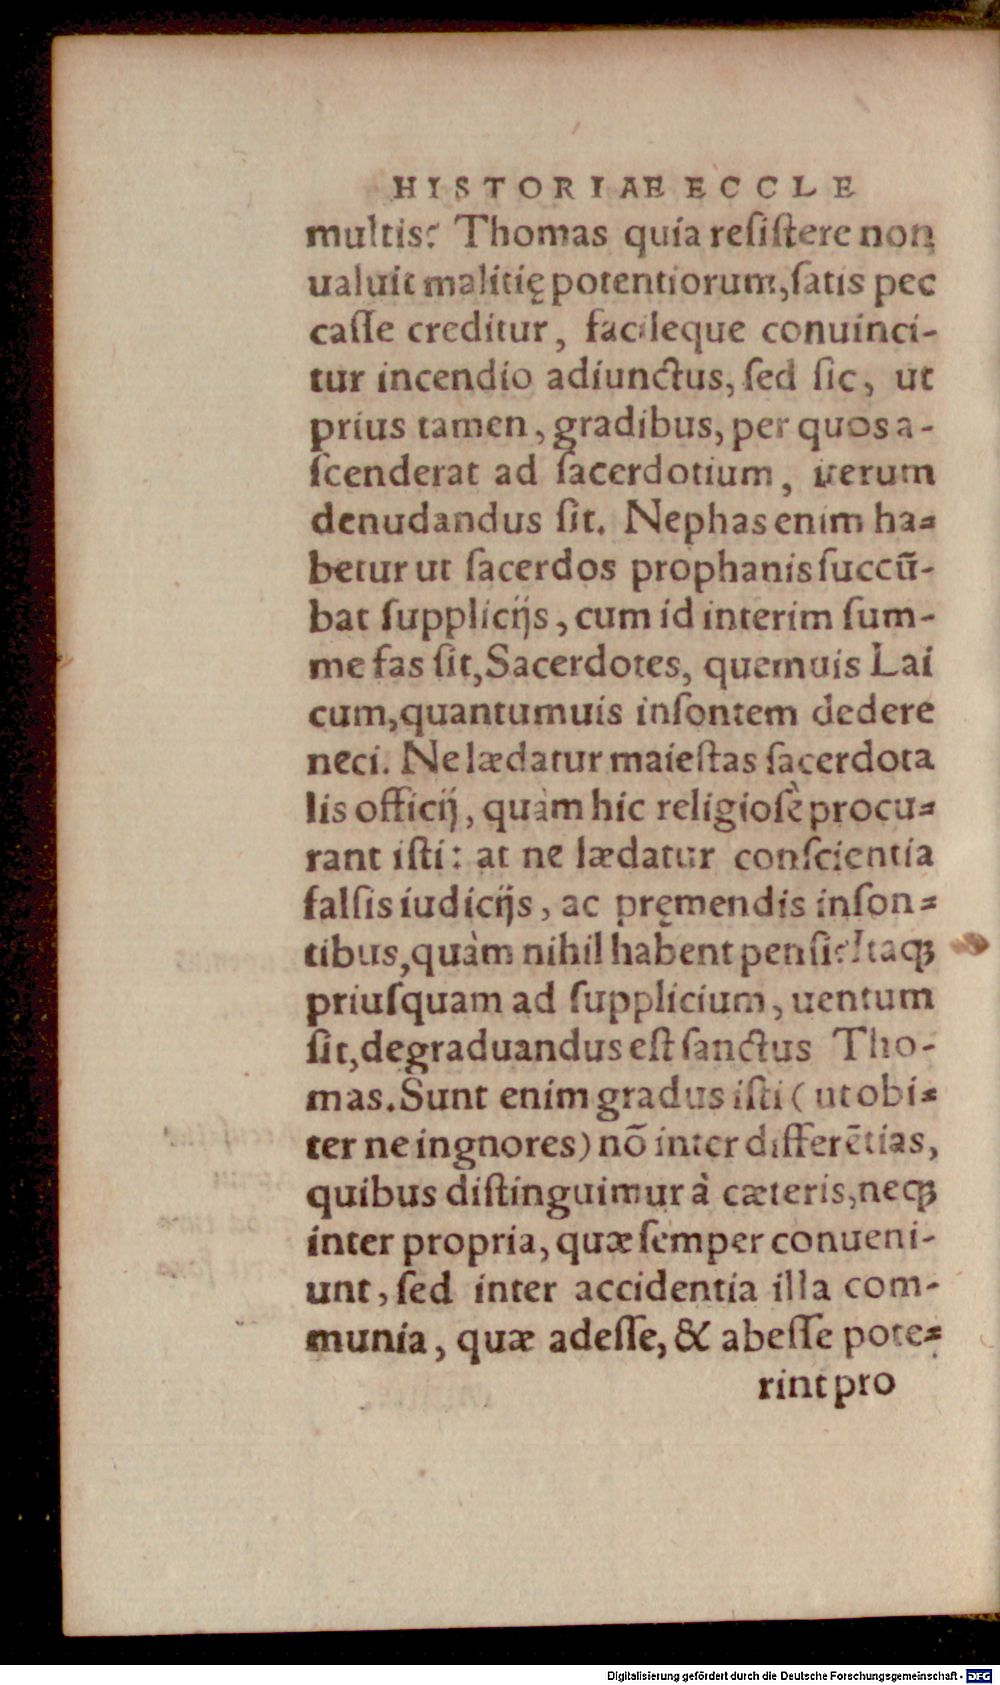 HISTORIAE ECCLE
multis? Thomas quia resistere non
ualuit malitię potentiorum, satis pec
casse creditur, facileque conuinci-
tur incendio adiunctus, sed sic, ut
prius tamen, gradibus, per quos a-
scenderat ad sacerdotium, uerum
denudandus sit. Nephas enim ha-
betur ut sacerdos prophanis succū-
bat supplicijs, cum id interim sum-
me fas sit, Sacerdotes, quemuis Lai
cum, quantumuis insontem dedere
neci. Ne lædatur maiestas sacerdota
lis officij, quàm hic religiosè procu-
rant isti: at ne lædatur conscientia
falsis iudicijs, ac pręmendis inson-
tibus, quàm nihil habent pensi? Itaqꝫ
priusquam ad supplicium, uentum
sit, degraduandus est sanctus Tho-
mas. Sunt enim gradus isti (ut obi-
ter ne ingnores) nō inter differētias,
quibus distinguimur à cæteris, neqꝫ
inter propria, quæ semper conueni-
unt, sed inter accidentia illa com-
munia, quæ adesse, & abesse pote-
rint pro
Digitalisierung gefördert durch die Deutsche Forschungsgemeinschaft - DFG